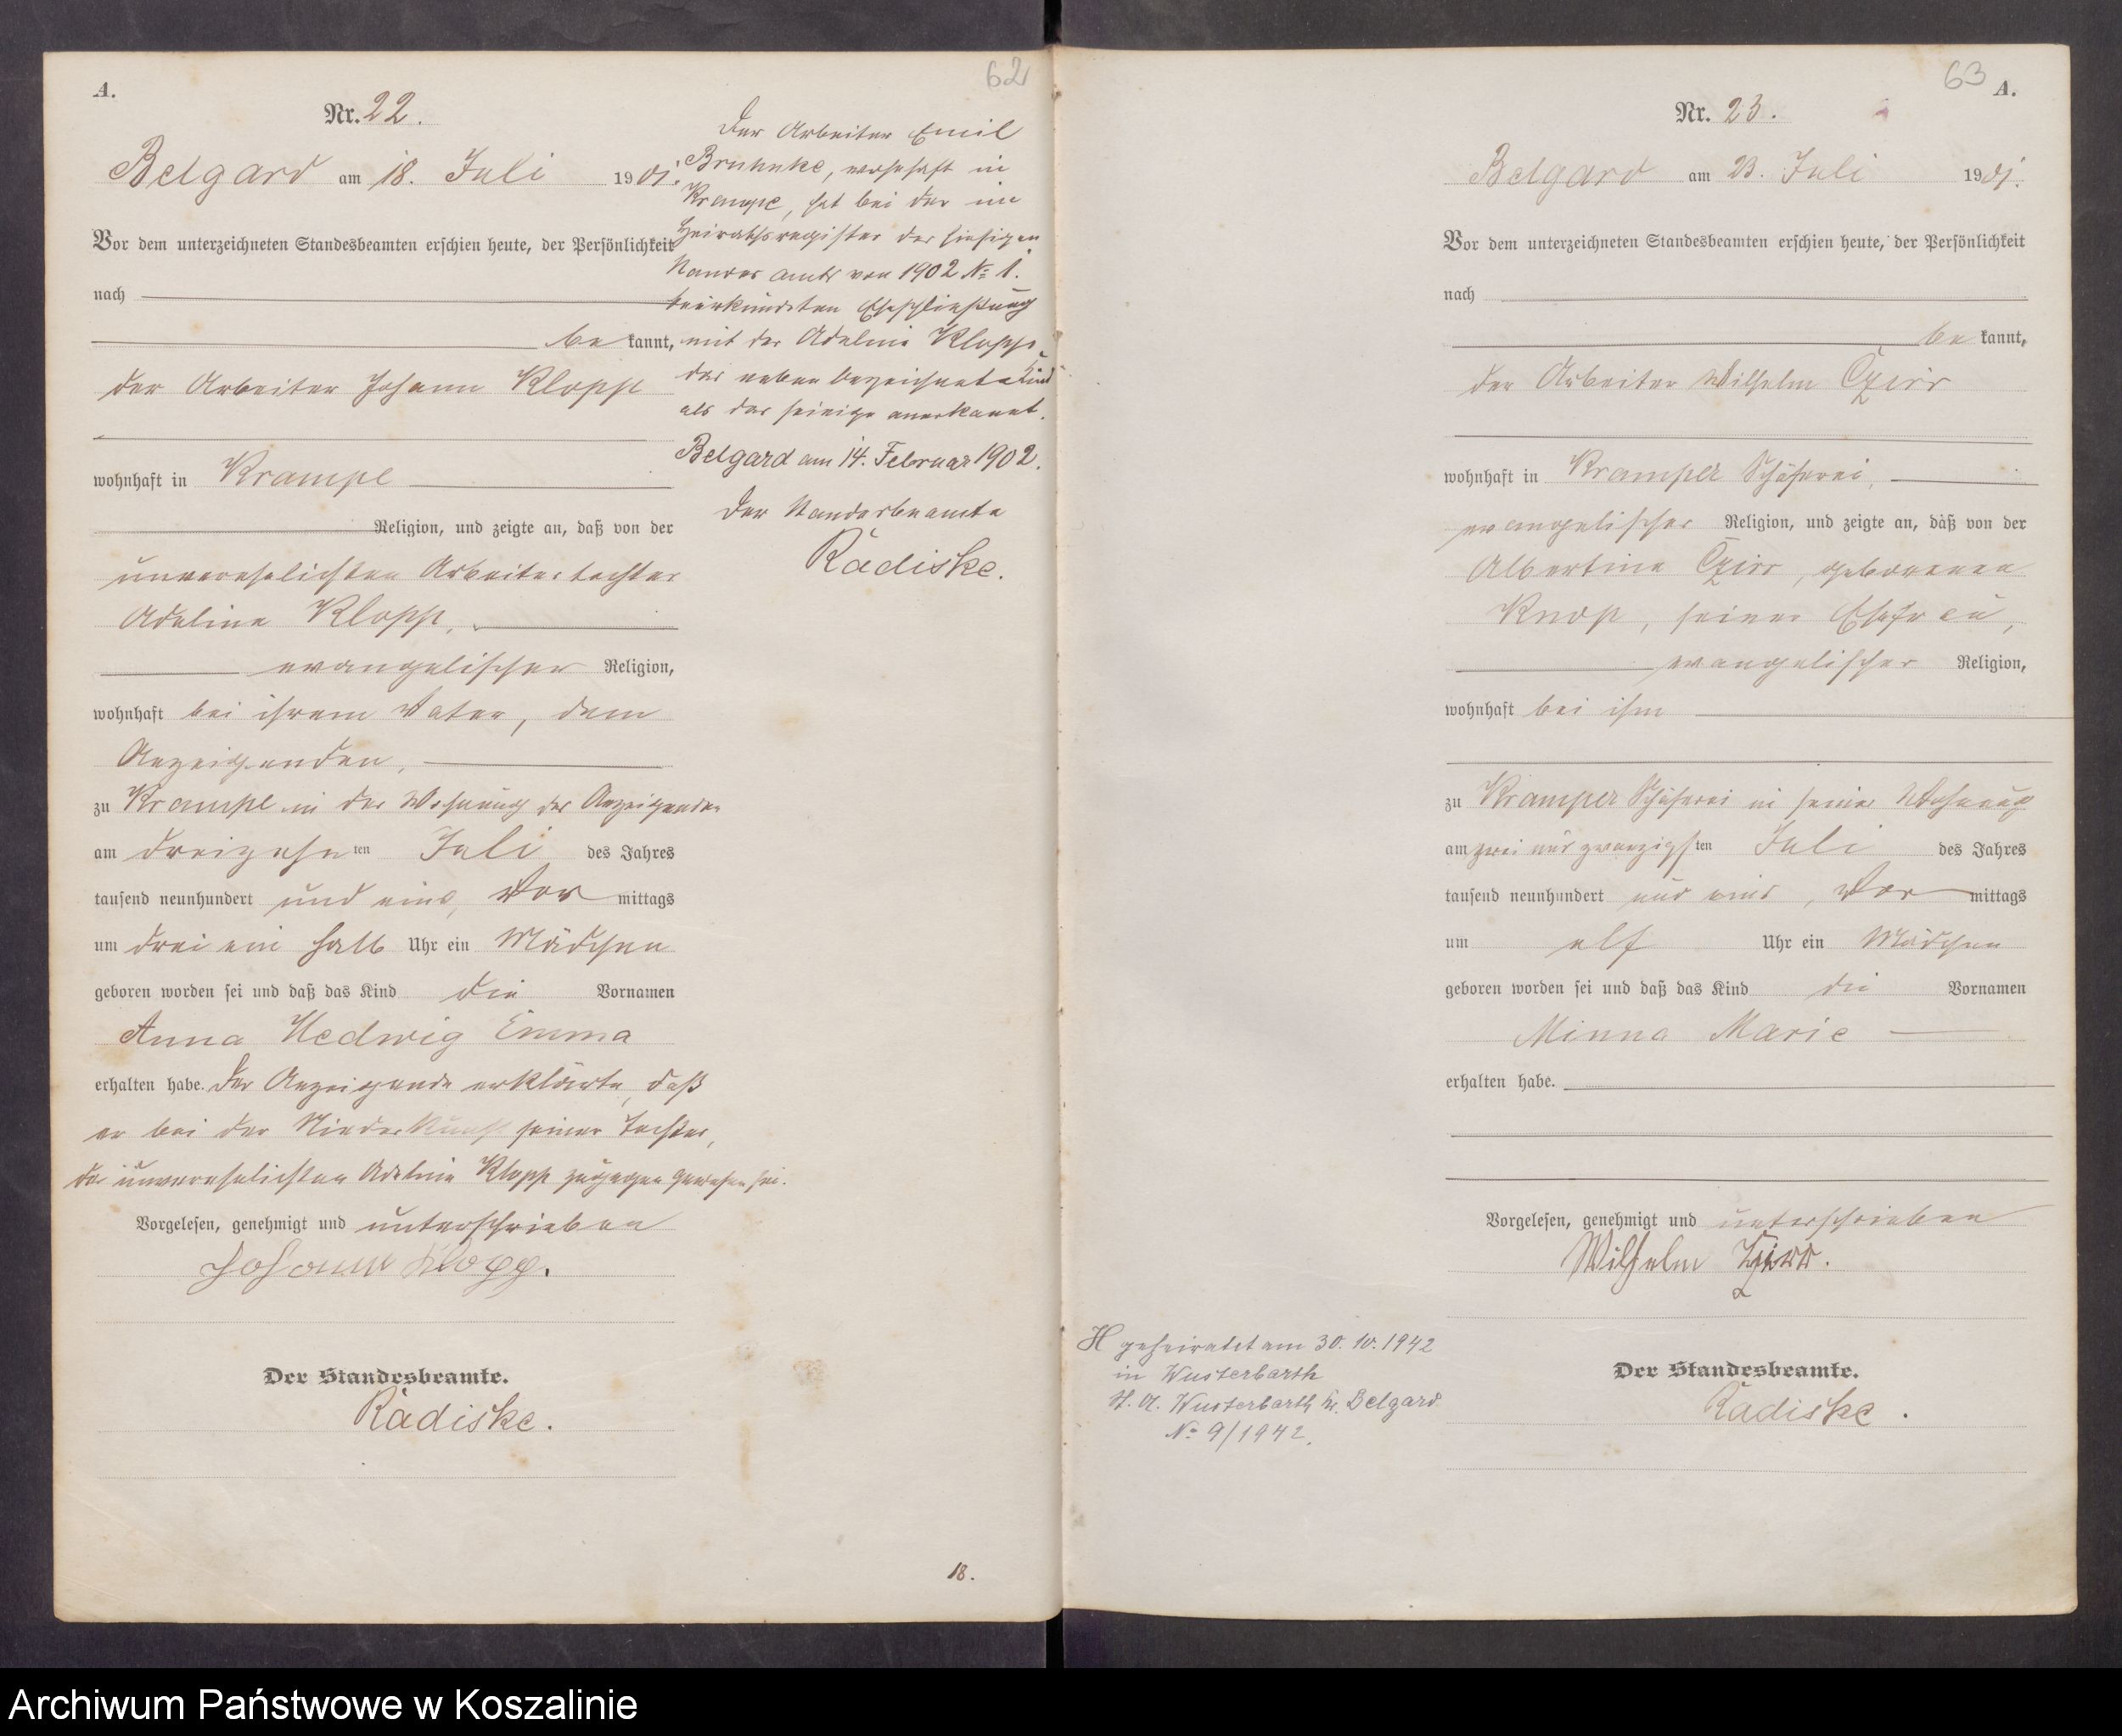 62
A.
Nr. 22.
Belgard am 18. Juli 1901.
Vor dem unterzeichneten Standesbeamten erschien heute, der Persönlichkeit
nach
be kannt,
der Arbeiter Johann Klopp
wohnhaft in Krampe
Religion, und zeigte an, daß von der
unverehelichten Arbeitertochter
Adeline Klopp,
evangelischer Religion,
wohnhaft bei ihrem Vater, dem
Anzeigenden,
zu Krampe in der Wohnung des Anzeigenden
am dreizehn ten Juli des Jahres
tausend neunhundert und eins, Vor mittags
um drei ein halb Uhr ein Mädchen
geboren worden sei und daß das Kind die Vornamen
Anna Hedwig Emma
erhalten habe. Der Anzeigende erklärte, daß
er bei der Niederkunft seiner Tochter,
der unverehelichten Adeline Klopp zugegen gewesen sei.
Vorgelesen, genehmigt und unterschrieben
Johann Klopp.
Der Standesbeamte.
Radiske.
Der Arbeiter Emil
Brunnke, wohnhaft in
Krampe, hat bei der im
Heirathsregister des hiesigen
Standesamts von 1902 No 1.
beurkundeten Eheschließung
mit der Adeline Klopp
das neben bezeichnete Kind
als das seinige anerkannt.
Belgard am 14. Februar 1902.
Der Standesbeamte
Radiske.
18.
63
A.
Nr. 23.
Belgard am 23. Juli 1901.
Vor dem unterzeichneten Standesbeamten erschien heute, der Persönlichkeit
nach
be kannt,
der Arbeiter Wilhelm Czirr
wohnhaft in Kramper Schäferei,
evangelischer Religion, und zeigte an, daß von der
Albertine Czirr, geborenen
Knop, seiner Ehefrau,
evangelischer Religion,
wohnhaft bei ihm
zu Kramper Schäferei in seiner Wohnung
am zwei und zwanzigsten Juli des Jahres
tausend neunhundert und eins, Vor mittags
um elf Uhr ein Mädchen
geboren worden sei und daß das Kind die Vornamen
Minna Marie
erhalten habe.
Vorgelesen, genehmigt und unterschrieben
Wilhelm Czirr.
Der Standesbeamte.
Radiske.
H geheiratet am 30. 10. 1942
in Wusterbarth
St. A. Wusterbarth Kr. Belgard
No 9/1942.
Archiwum Państwowe w Koszalinie